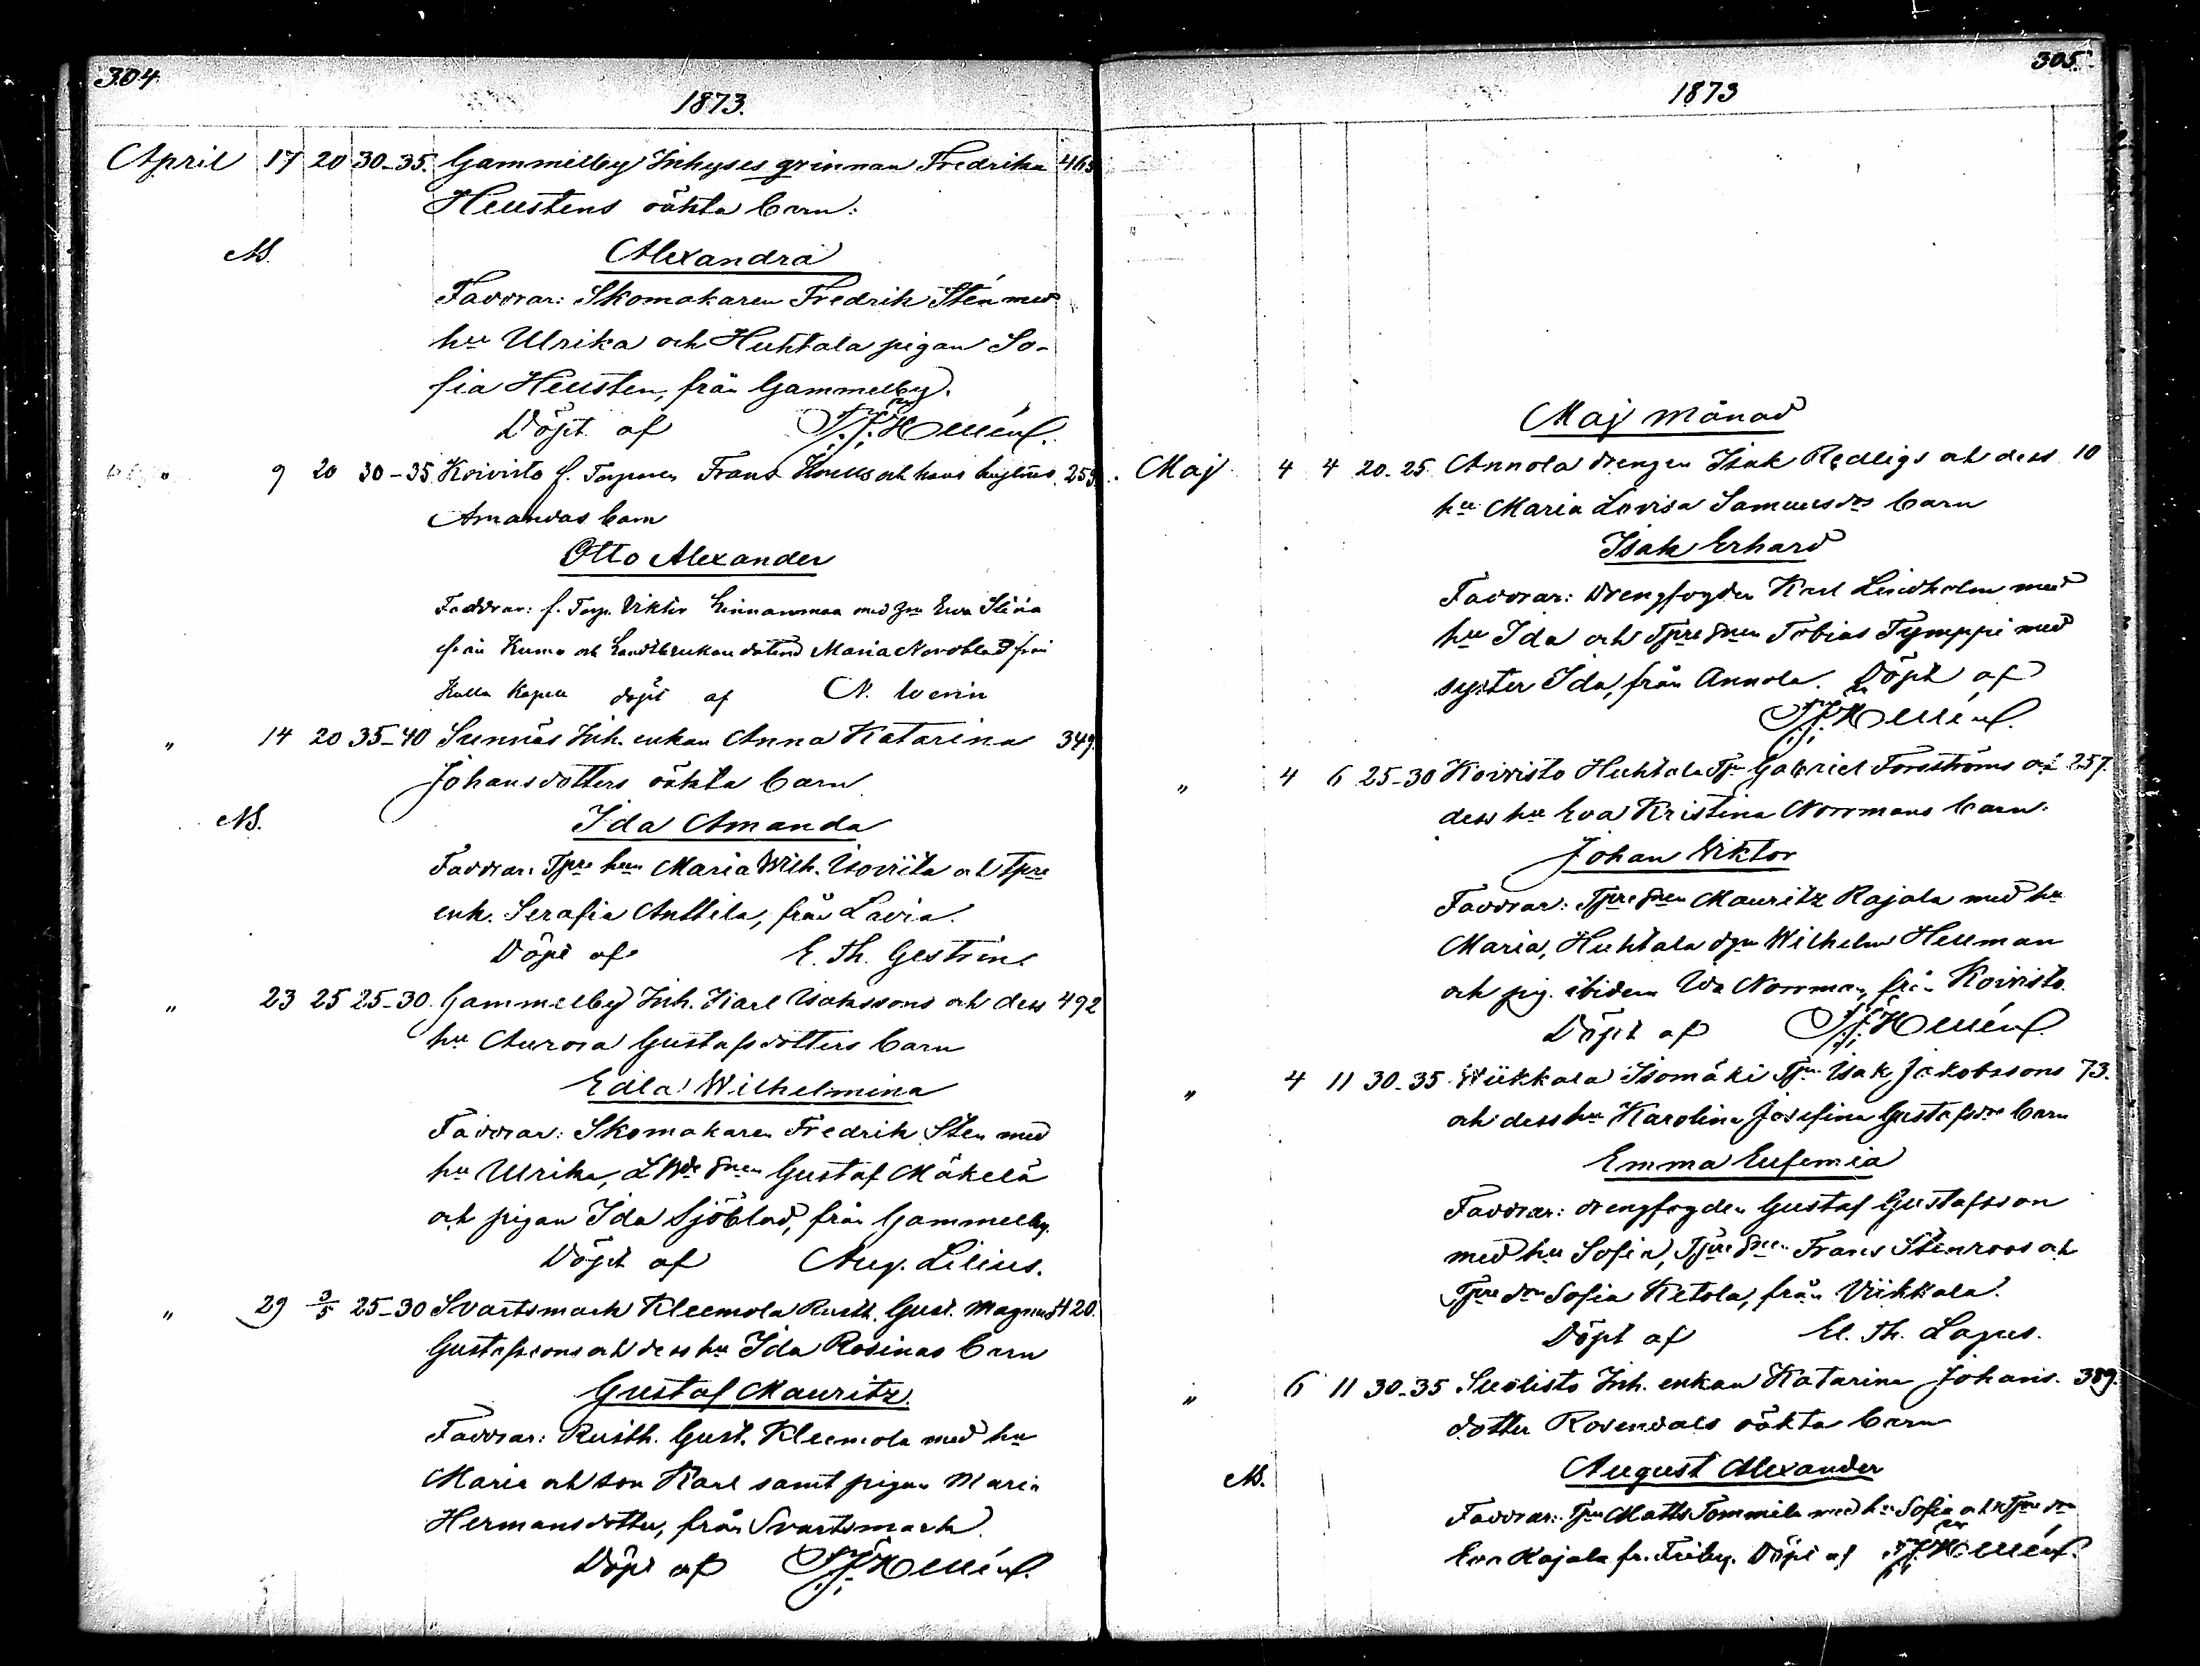 304.
1873.
April 17 20 30-35. Gammelby Inhyses qvinnan Fredrika 465
Hellstens oäkta barn:
NB. Alexandra
Faddrar: Skomakaren Fredrik Stén med
hu Ulrika och Huhtala pigan So-
fia Hellsten, från Gammelby.
Döpt af F. J. Hellén.
9 20 30-35 Koivisto f. Torparen Frans och hans hustrus 259.
Amandas barn
Otto Alexander
Faddrar: f. Torp. Viktor med Eva Stina
från Kumo och Maria Nordblad från
Kulla Kapell döpt af N. Wenin
" 14 20 35-40 Sunnäs Inh. enkan Anna Katarina 349.
Johansdotters oäkta barn
NB. Ida Amanda
Faddrar: Tpre hun Maria Wilh. Isoviita och Tpre
enk. Serafia Anttila, från Lavia.
Döpt af E. Th. Gestrin.
" 23 25 25-30. Gammelby Inh. Karl Isakssons och dess 492
hu Aurora Gustafsdotters barn
Edla Wilhelmina
Faddrar: Skomakaren Fredrik Sten med
hu Ulrika, Gustaf Mäkelä
och pigan Ida Sjöblad, från Gammelby.
Döpt af Aug. Lilius.
" 29 3/5 25-30 Svartsmark Kleemola Rusth. Gust. Magnus 420.
Gustafssons och dess hu Ida Rosinas barn
Gustaf Mauritz.
Faddrar: Rusth. Gust. Kleemola med hu
Maria och son Karl samt pigan Maria
Hermansdotter, från Svartsmark.
Döpt af F. J. Hellén.
305.
1873
Maj månad
Maj 4 4 20-25. Annola drengen Isak Redligs och dess 10
hu Maria Lovisa Samuelsdrs barn
Isak Erhard
Faddrar: Drengfogden Karl Lindholm med
hu Ida och Tpre Snen Tobias Tymppi med
syster Ida, från Annola. Döpt af
F. J. Hellén.
" 4 6 25-30 Koivisto Huhtala Tpn Gabriel Forsströms och 257.
dess hu Eva Kristina Norrmans barn:
Johan Wiktor
Faddrar: Tpre Snen Mauritz Rajala med hu
Maria, Huhtala dgn Wilhelm Hellman
och pig. ibidem Norrman, från Koivisto.
Döpt af F. J. Hellén.
" 4 11 30-35 Wiikkala Isomäki Tpn Isak Jakobssons 73.
och dess hu Karolina Josefina Gustafsdrs barn
Emma Eufemia
Faddrar: drengfogden Gustaf Gustafsson
med hu Sofia, Tpre Snen Frans Stenroos och
Tpre drn Sofia Ketola, från Viikkala.
Döpt af El. Th. Lagus.
" 6 11 30-35 Suolisto Inh. enkan Katarina Johans- 389.
dotter Rosendals oäkta barn
NB. August Alexander
Faddrar: Tpn Matts Tommila med hu Sofia och Tpre drn
Eva Rajala fr. Friby. Döpt af F. J. Hellén.